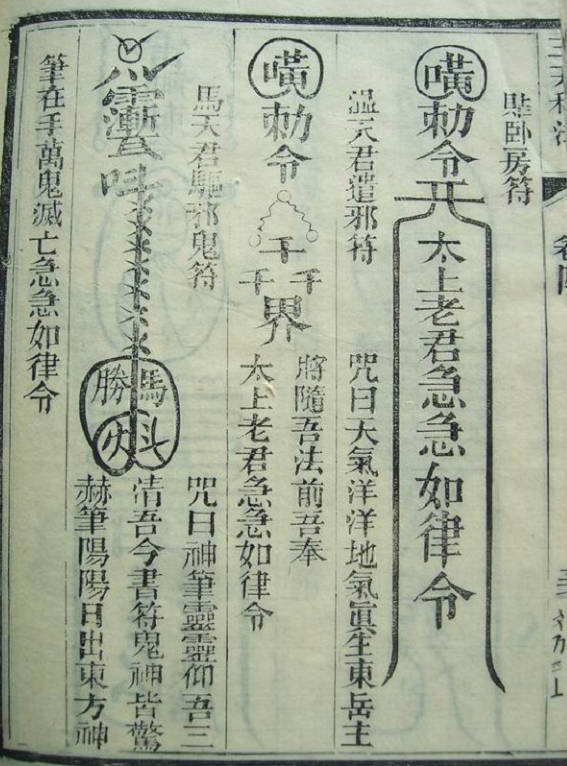 貼卧房符
勅令
太上老君急急如律令
溫元君遣邪符
咒曰天氣洋洋地氣眞生東岳主
將隨吾法前吾奉
太上老君急急如律令
勅令
千千千
界
馬天君驅邪鬼符
咒曰神筆靈靈仰吾三
清吾今書符鬼神皆驚
赫筆陽陽日出東方神
筆在手萬鬼滅亡急急如律令